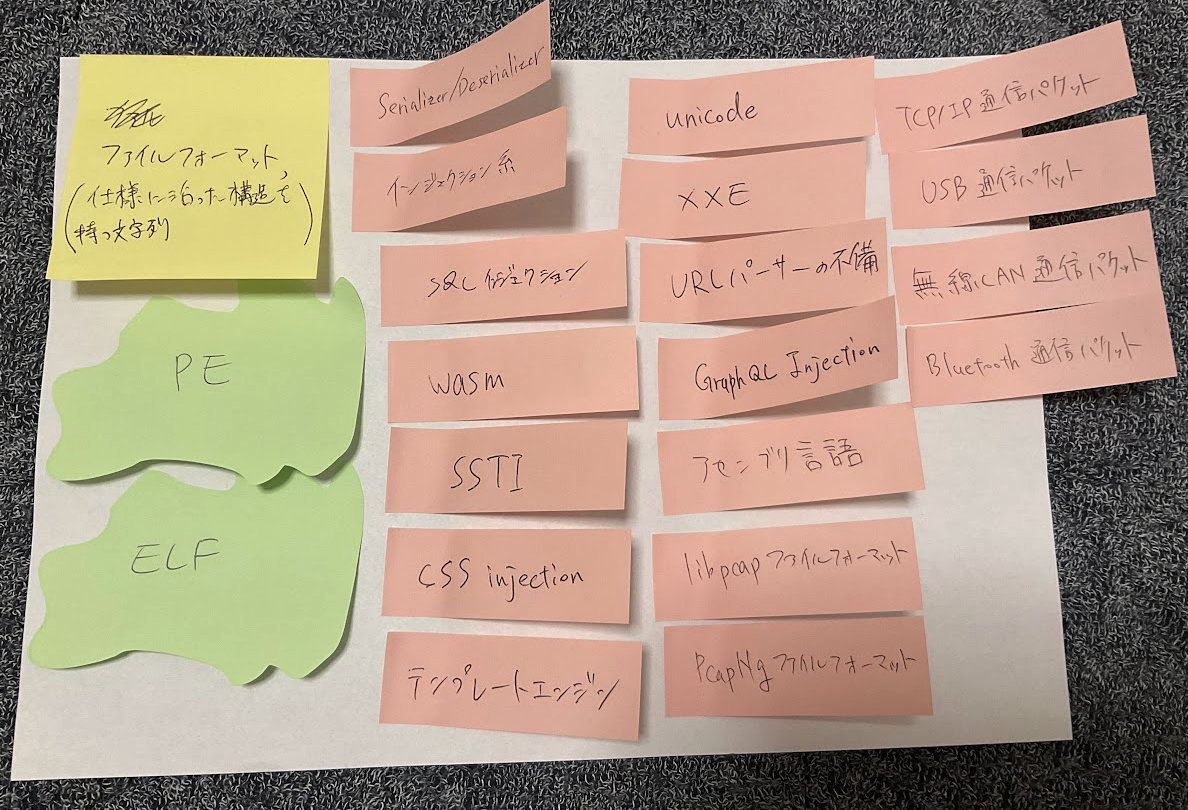 ファイルフォーマット,
(仕様に沿った構造を
持つ文字列)
PE
ELF
Serializer/Deserializer
インジェクション系
SQLインジェクション
wasm
SSTI
CSS injection
テンプレートエンジン
unicode
XXE
URLパーサーの不備
GraphQL Injection
アセンブリ言語
libpcapファイルフォーマット
PcapNgファイルフォーマット
TCP/IP通信パケット
USB通信パケット
無線CAN通信パケット
Bluetooth通信パケット